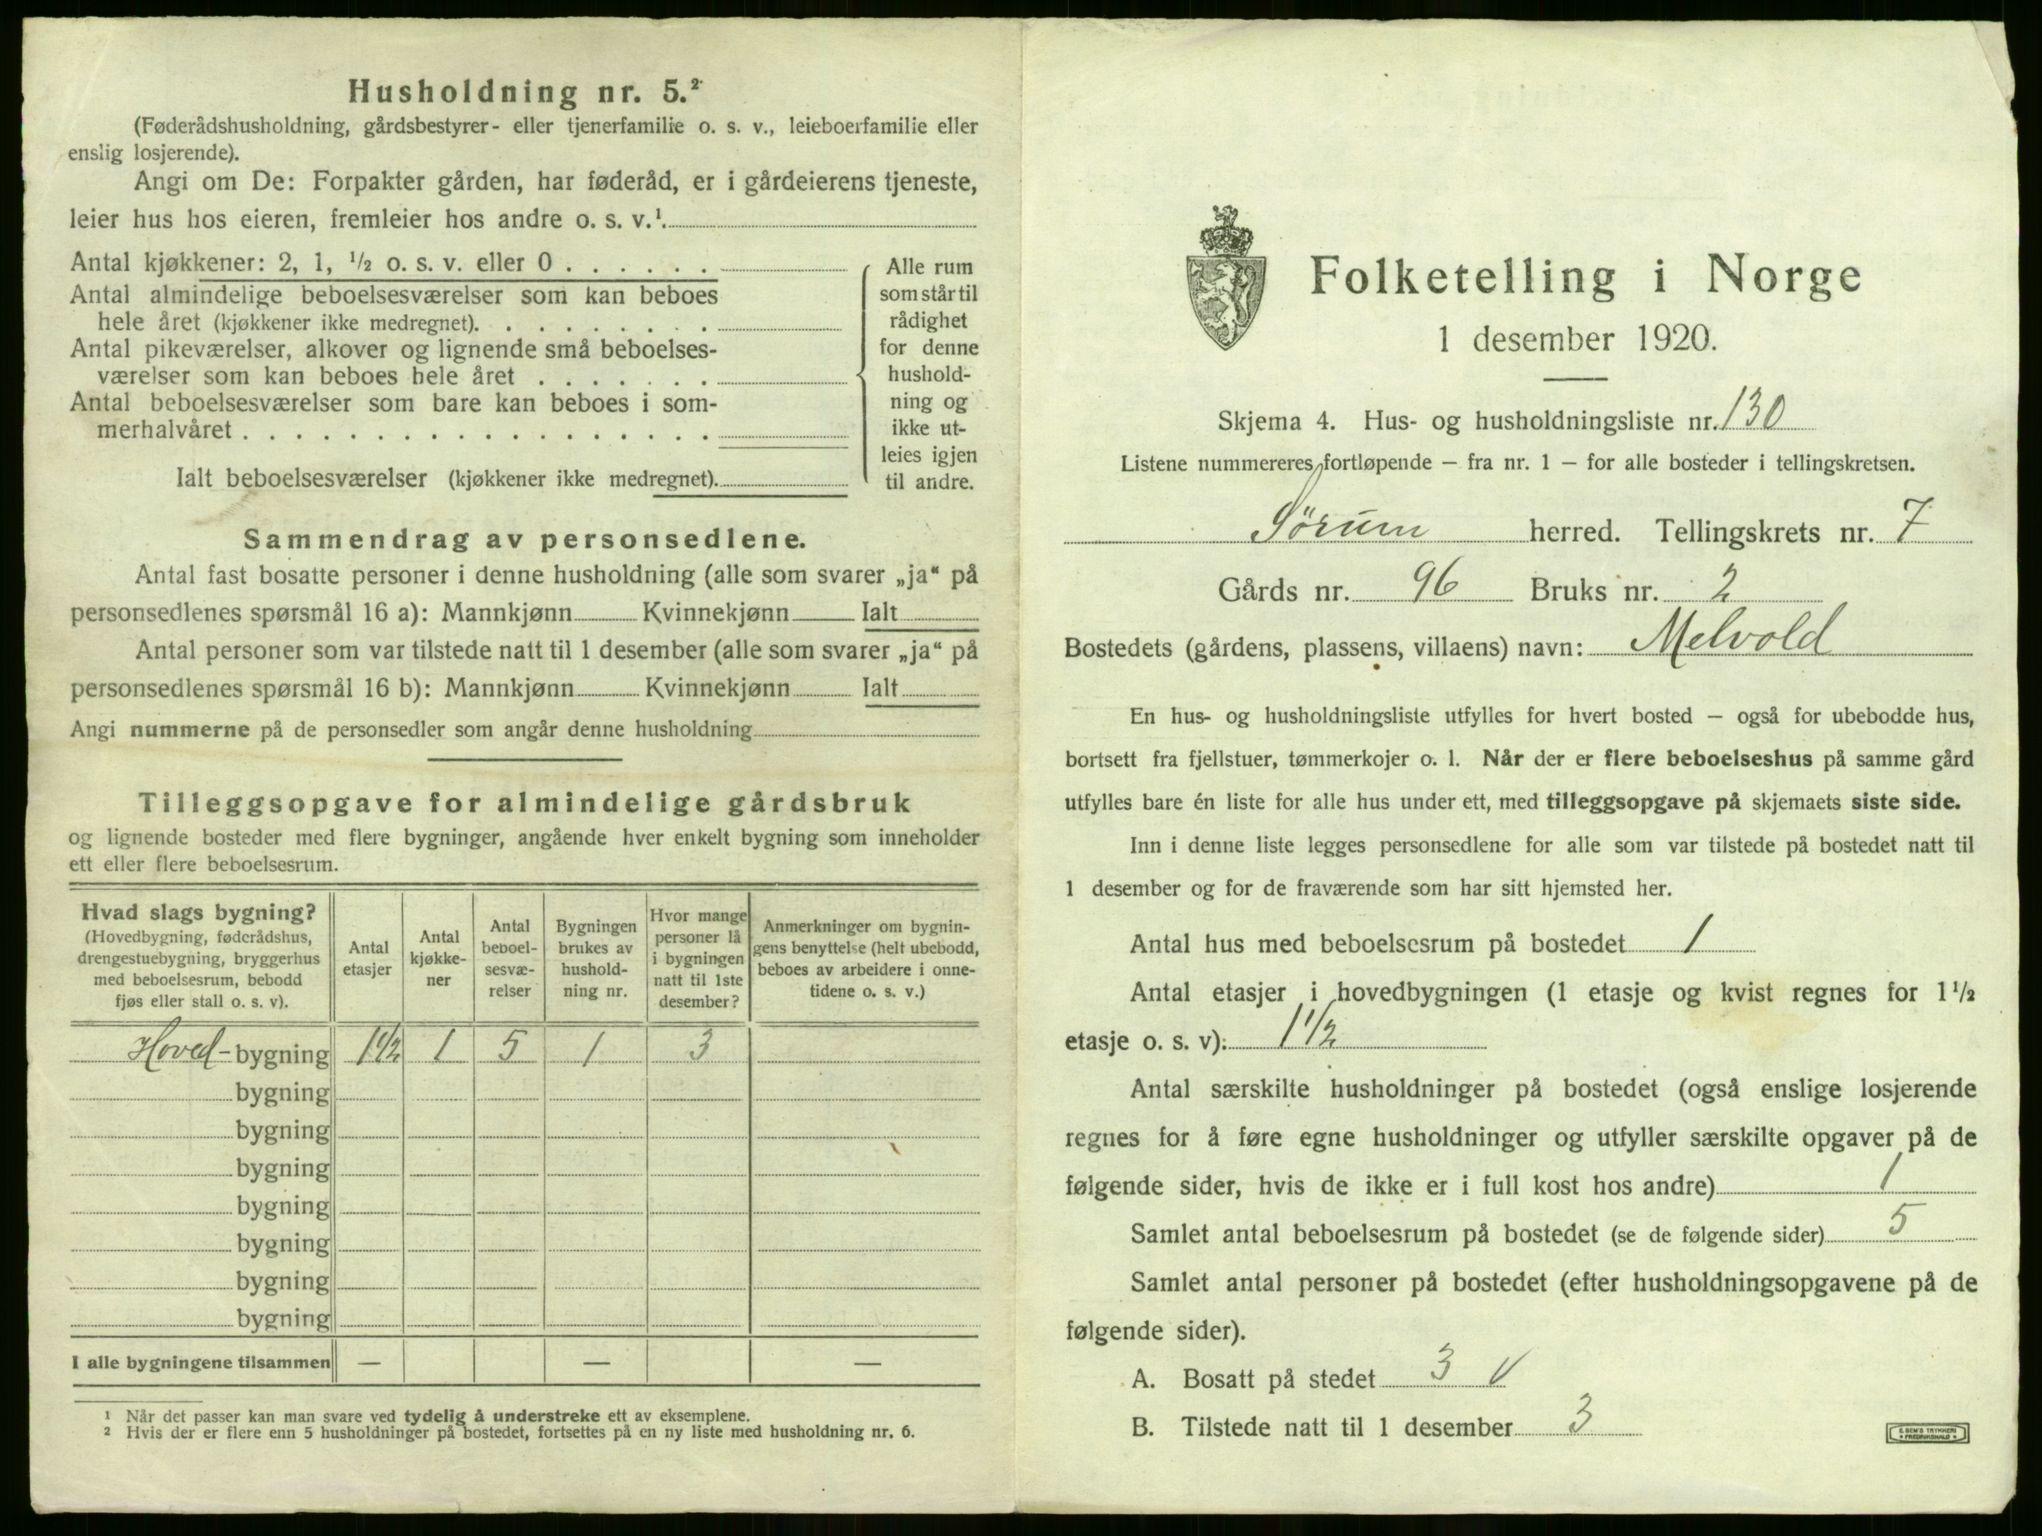 Husholdning nr. 5.²
(Føderådshusholdning, gårdsbestyrer- eller tjenerfamilie o. s. v., leieboerfamilie eller
enslig losjerende).
Angi om De: Forpakter gården, har føderåd, er i gårdeierens tjeneste,
leier hus hos eieren, fremleier hos andre o. s. v.¹
Antal kjøkkener: 2, 1, ½ o. s. v. eller 0 . . . . . .
Antal almindelige beboelsesværelser som kan beboes
hele året (kjøkkener ikke medregnet). . . . . . . . .
Antal pikeværelser, alkover og lignende små beboelses-
værelser som kan beboes hele året . . . . . . .
Antal beboelsesværelser som bare kan beboes i som-
merhalvåret . . . . . . . . . . . . . . . . . .
Ialt beboelsesværelser (kjøkkener ikke medregnet).
Alle rum
som står til
rådighet
for denne
hushold-
ning og
ikke ut-
leies igjen
til andre.
Sammendrag av personsedlene.
Antal fast bosatte personer i denne husholdning (alle som svarer „ja“ på
personsedlenes spørsmål 16 a): Mannkjønn Kvinnekjønn Ialt
Antal personer som var tilstede natt til 1 desember (alle som svarer „ja“ på
personsedlenes spørsmål 16 b): Mannkjønn Kvinnekjønn Ialt
Angi nummerne på de personsedler som angår denne husholdning
Tilleggsopgave for almindelige gårdsbruk
og lignende bosteder med flere bygninger, angående hver enkelt bygning som inneholder
ett eller flere beboelsesrum.
Hvad slags bygning?
(Hovedbygning, føderådshus,
drengestuebygning, bryggerhus
med beboelsesrum, bebodd
fjøs eller stall o. s. v).
Antal
etasjer
Antal
kjøkke-
ner
Antal
beboel-
sesvæ-
relser
Bygningen
brukes av
hushold-
ning nr.
Hvor mange
personer lå
i bygningen
natt til 1ste
desember?
Anmerkninger om bygnin-
gens benyttelse (helt ubebodd,
beboes av arbeidere i onne-
tidene o. s. v.)
Hoved-bygning 1½ 1 5 1 3
bygning
bygning
bygning
bygning
bygning
bygning
bygning
I alle bygningene tilsammen — — —
¹ Når det passer kan man svare ved tydelig å understreke ett av eksemplene.
² Hvis der er flere enn 5 husholdninger på bostedet, fortsettes på en ny liste med husholdning nr. 6.
Folketelling i Norge
1 desember 1920.
Skjema 4. Hus- og husholdningsliste nr. 130
Listene nummereres fortløpende — fra nr. 1 — for alle bosteder i tellingskretsen.
Sørum herred. Tellingskrets nr. 7
Gårds nr. 96 Bruks nr. 2
Bostedets (gårdens, plassens, villaens) navn: Melvold
En hus- og husholdningsliste utfylles for hvert bosted — også for ubebodde hus,
bortsett fra fjellstuer, tømmerkojer o. l. Når der er flere beboelseshus på samme gård
utfylles bare én liste for alle hus under ett, med tilleggsopgave på skjemaets siste side.
Inn i denne liste legges personsedlene for alle som var tilstede på bostedet natt til
1 desember og for de fraværende som har sitt hjemsted her.
Antal hus med beboelsesrum på bostedet 1
Antal etasjer i hovedbygningen (1 etasje og kvist regnes for 1½
etasje o. s. v): 1½
Antal særskilte husholdninger på bostedet (også enslige losjerende
regnes for å føre egne husholdninger og utfyller særskilte opgaver på de
følgende sider, hvis de ikke er i full kost hos andre) 1
Samlet antal beboelsesrum på bostedet (se de følgende sider) 5
Samlet antal personer på bostedet (efter husholdningsopgavene på de
følgende sider).
A. Bosatt på stedet 3 V
B. Tilstede natt til 1 desember 3